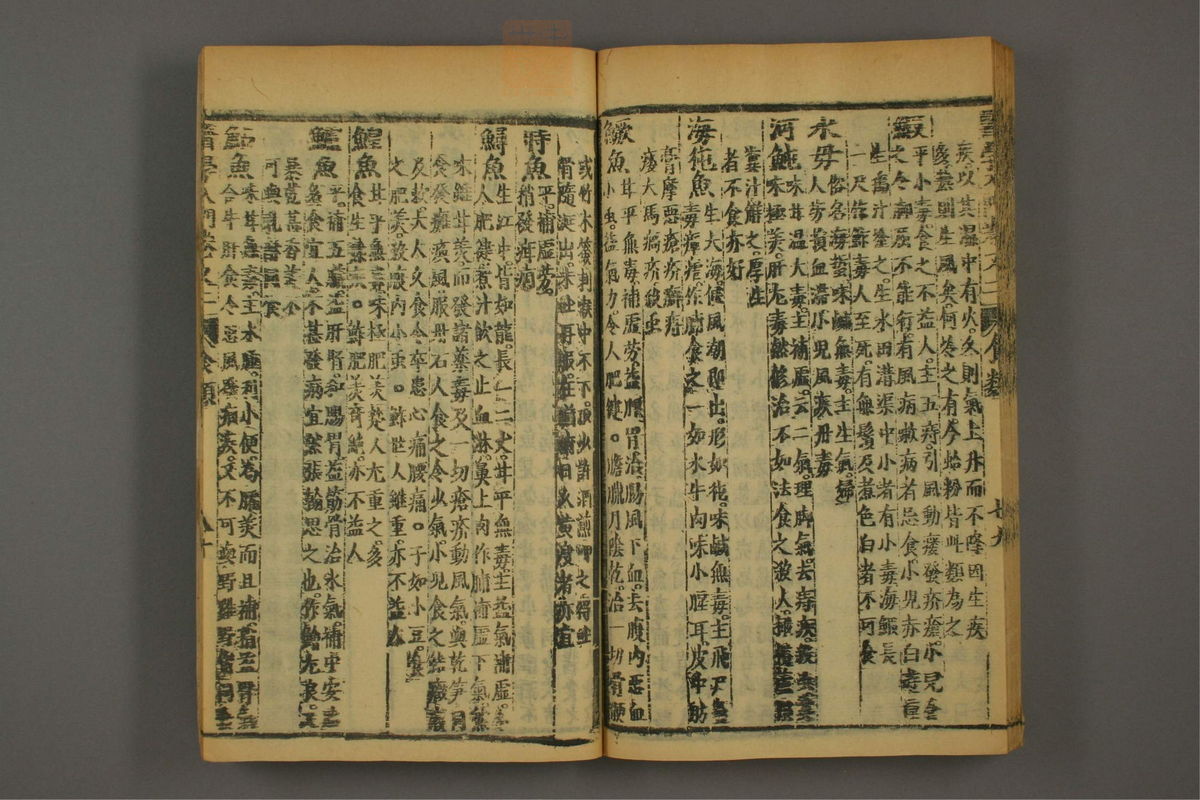 疾以其濕中有火久則氣上升而不降因生痰
痰蓋因生風矣何冷之有今蛤粉皆此類為之
鰕平小毒食之不益人主五痔引風動瘡發疥癬小兒食
之令脚屈不能行有風病嗽病者忌食小兒赤白毒腫
生搗汁塗之生水田溝渠中小者有小毒海鰕長
一尺作鮓毒人至死有無鬚及煮色白者不可食
水母俗名海蜇味鹹無毒主生氣婦
人勞損血滯小兒風疾丹毒
河魨味甘溫大毒主補虛去二氣理脚氣去痔疾
味極美肝尤毒然修治不如法食之殺人
糞汁解之厚生
者不食亦好
海㹠魚生大海候風潮即出形如㹠味鹹無毒主飛尸
毒瘴瘧作脯食之一如水牛肉味小腥耳皮中肪
膏摩惡瘡疥癬痔
瘻犬馬瘑疥殺蟲
鱖魚甘平無毒補虛勞益脾胃治腸風下血去腹內惡血
小蟲益氣力令人肥健膽臘月陰乾治一切骨鯁
或竹木籤刺喉中不下取少許酒煎呷之得吐
骨隨涎出
鰣魚平補虛勞
稍發疳痼
鱘魚生江中背如龍長一二丈甘平無毒主益氣補虛
人肥健煮汁飲之止血淋鼻上肉作脯補虛下氣然
味雖甘美而發諸藥毒及一切瘡疥動風氣與乾筍同
食發癱瘓風服丹石人食之令少氣小兒食之結癥瘕
及嗽大人久食令卒患心痛腰痛子如小豆食
之肥美殺腹內小蟲鮓世人雖重亦不益人
鰉魚甘平無毒味極肥美楚人尤重之多
食生熱疾鮓肥美奇絕亦不益人
鱸魚平補五臟益肝腎和腸胃益筋骨治水氣補中安
多食宜人不甚發病宜然張翰思之也作鮓尤良
可與乳酪同食
鮎魚味甘無毒主水腫利小便為臛美而且補
合牛肝食令患風噎痼疾又不可與野雞野
醫學入門卷之二　食類　八十